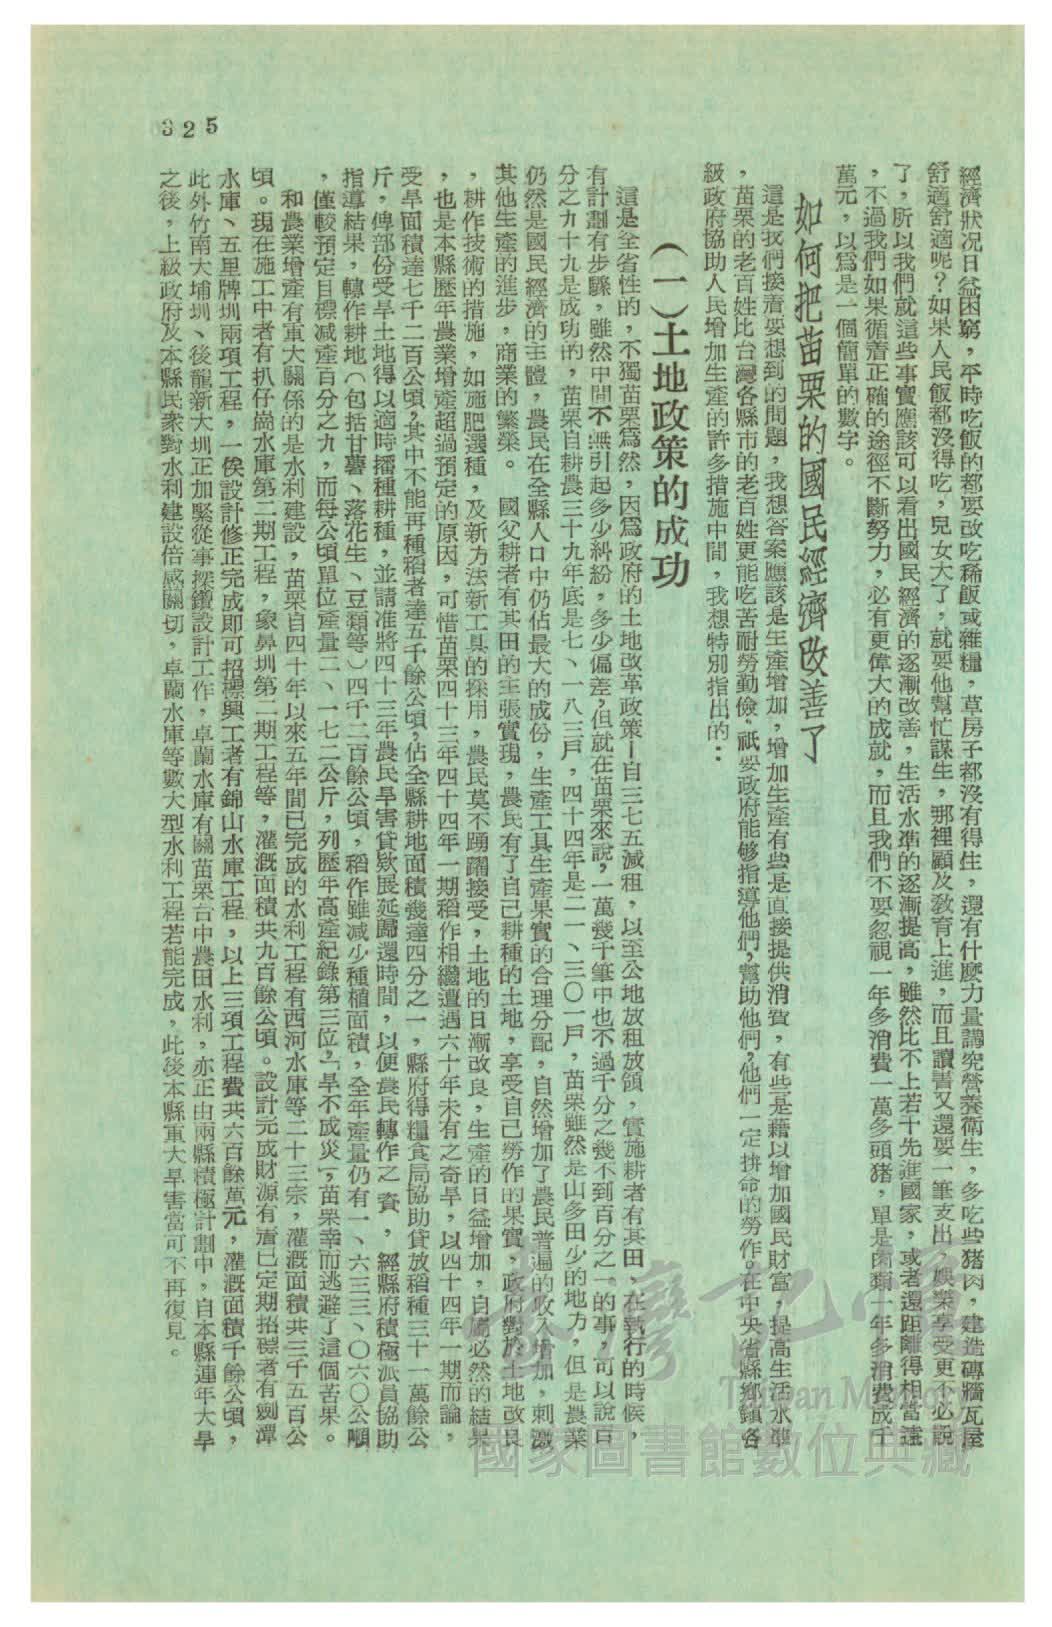 325
經濟狀况日益困窮，平時吃飯的都要改吃稀飯或雜糧，草房子都沒有得住，還有什麼力量講究營養衛生，多吃些猪肉，建造磚牆瓦屋
舒適舒適呢？如果人民飯都沒得吃，兒女大了，就要他幫忙謀生，那裡顧及敎育上進，而且讀書又還要一筆支出，娛樂享受更不必說
了，所以我們就這些事實應該可以看出國民經濟的逐漸改善，生活水準的逐漸提高，雖然比不上若干先進國家，或者還距離得相當遠
，不過我們如果循着正確的途徑不斷努力，必有更偉大的成就，而且我們不要忽視一年多消費一萬多頭猪，單是肉類一年多消費成千
萬元，以爲是一個簡單的數字。
如何把苗栗的國民經濟改善了
這是我們接着要想到的問題，我想答案應該是生產增加，增加生產有些是直接提供消費，有些是藉以增加國民財富，提高生活水準
，苗栗的老百姓比台灣各縣市的老百姓更能吃苦耐勞勤儉，祇要政府能够指導他們，幫助他們，他們一定拚命的勞作。在中央省縣鄉鎮各
級政府協助人民增加生產的許多措施中間，我想特別指出的：
（一）土地政策的成功
這是全省性的，不獨苗栗爲然，因爲政府的土地改革政策—自三七五減租，以至公地放租放領，實施耕者有其田，在執行的時候，
有計劃有步驟，雖然中間不無引起多少糾紛，多少偏差，但就在苗栗來說，一萬幾千筆中也不過千分之幾不到百分之一的事，可以說百
分之九十九是成功的，苗栗自耕農三十九年底是七、一八三戶，四十四年是二一、三〇一戶，苗栗雖然是山多田少的地方，但是農業
仍然是國民經濟的主體，農民在全縣人口中仍佔最大的成份，生產工具生產果實的合理分配，自然增加了農民普遍的收入增加，刺激
其他生產的進步，商業的繁榮。　國父耕者有其田的主張實現，農民有了自己耕種的土地，享受自己勞作的果實，政府對於土地改良
，耕作技術的措施，如施肥選種，及新方法新工具的採用，農民莫不踴躍接受，土地的日漸改良，生產的日益增加，自屬必然的結果
，也是本縣歷年農業增產超過預定的原因，可惜苗栗四十三年四十四年一期稻作相繼遭遇六十年未有之奇旱，以四十四年一期而論，
受旱面積達七千二百公頃，其中不能再種稻者達五千餘公頃，佔全縣耕地面積幾達四分之一，縣府得糧食局協助貸放稻種三十一萬餘公
斤，俾部份受旱土地得以適時播種耕種，並請准將四十三年農民旱害貸欵展延歸還時間，以便農民轉作之資，經縣府積極派員協助
指導結果，轉作耕地（包括甘薯、落花生、豆類等）四千二百餘公頃，稻作雖減少種植面積，全年產量仍有一、六三三、〇六〇公噸
，僅較預定目標減產百分之九，而每公頃單位產量二、一七二公斤，列歷年高產紀錄第三位，「旱不成災」，苗栗幸而逃避了這個苦果。
和農業增產有重大關係的是水利建設，苗栗自四十年以來五年間已完成的水利工程有西河水庫等二十三宗，灌漑面積共三千五百公
頃。現在施工中者有扒仔崗水庫第二期工程，象鼻圳第二期工程等，灌漑面積共九百餘公頃。設計完成財源有着已定期招標者有劍潭
水庫、五里牌圳兩項工程，一俟設計修正完成即可招標興工者有錦山水庫工程，以上三項工程費共六百餘萬元，灌漑面積千餘公頃，
此外竹南大埔圳、後龍新大圳正加緊從事探鑽設計工作，卓蘭水庫有關苗栗台中農田水利，亦正由兩縣積極計劃中，自本縣連年大旱
之後，上級政府及本縣民衆對水利建設倍感關切，卓蘭水庫等數大型水利工程若能完成，此後本縣重大旱害當可不再復見。
臺灣記憶
Taiwan Memory
國家圖書館數位典藏